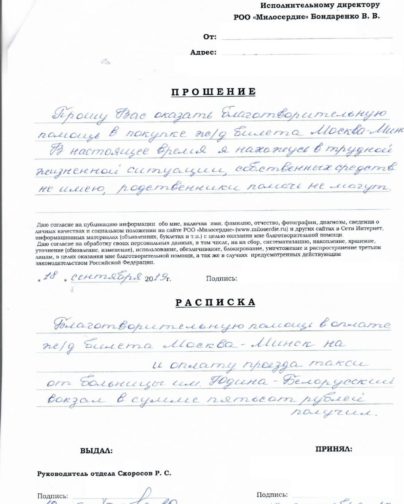 Исполнительному директору
РОО «Милосердие» Бондаренко В. В.
От:
Адрес:
ПРОШЕНИЕ
Прошу Вас оказать благотворительную
помощь в покупке ж/д билета Москва-Минск
В настоящее время я нахожусь в трудной
жизненной ситуации, собственных средств
не имею, родственники помочь не могут.
Даю согласие на публикацию информации: обо мне, включая имя, фамилию, отчество, фотографии, диагнозы, сведения о
личных качествах и социальном положении на сайте РОО «Милосердие» (www.miloserdie.ru) и других сайтах в Сети Интернет,
информационных материалах (объявления, буклеты и т.д.) с целью оказания мне благотворительной помощи.
Даю согласие на обработку своих персональных данных, в том числе, на сбор, систематизацию, накопление, хранение,
уточнение (обновление, изменение), использование, обезличивание, блокирование, уничтожение и распространение третьим
лицам, в целях оказания мне благотворительной помощи, а так же в случаях предусмотренных действующим
законодательством Российской Федерации.
18. сентября 2019г. Подпись:
РАСПИСКА
Благотворительную помощь в оплате
ж/д билета Москва-Минск на
и оплату проезда такси
от больницы им. Юдина-Белорусский
вокзал в сумме пятьсот рублей
получил.
ВЫДАЛ: ПРИНЯЛ:
Руководитель отдела Скоросов Р. С.
Подпись: Подпись: